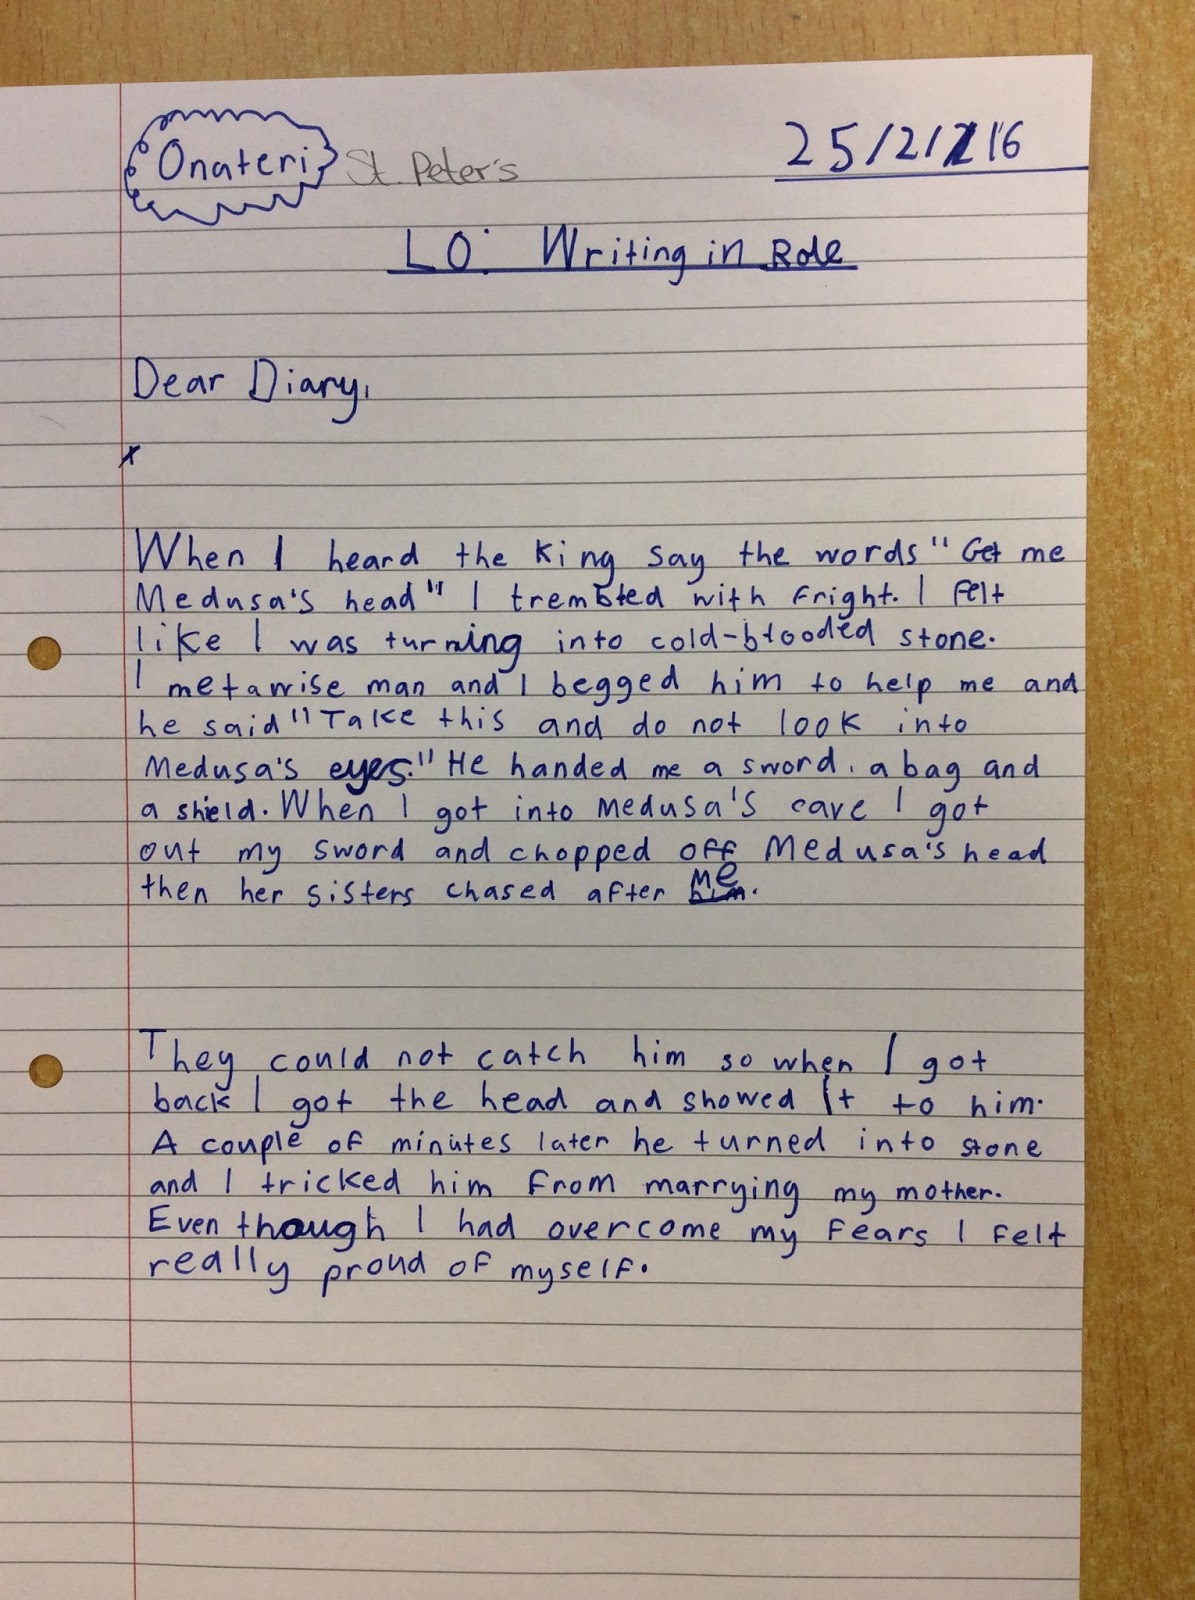 Onateri St. Peter's 25/2/16
LO: Writing in Role
Dear Diary,
x
When I heard the King say the words "Get me
Medusa's head" I trembled with fright. I felt
like I was turning into cold-blooded stone.
I met a wise man and I begged him to help me and
he said "Take this and do not look into
Medusa's eyes." He handed me a sword, a bag and
a shield. When I got into Medusa's cave I got
out my sword and chopped off Medusa's head
then her sisters chased after him me.
They could not catch him so when I got
back I got the head and showed It to him.
A couple of minutes later he turned into stone
and I tricked him from marrying my mother.
Even though I had overcome my fears I felt
really proud of myself.